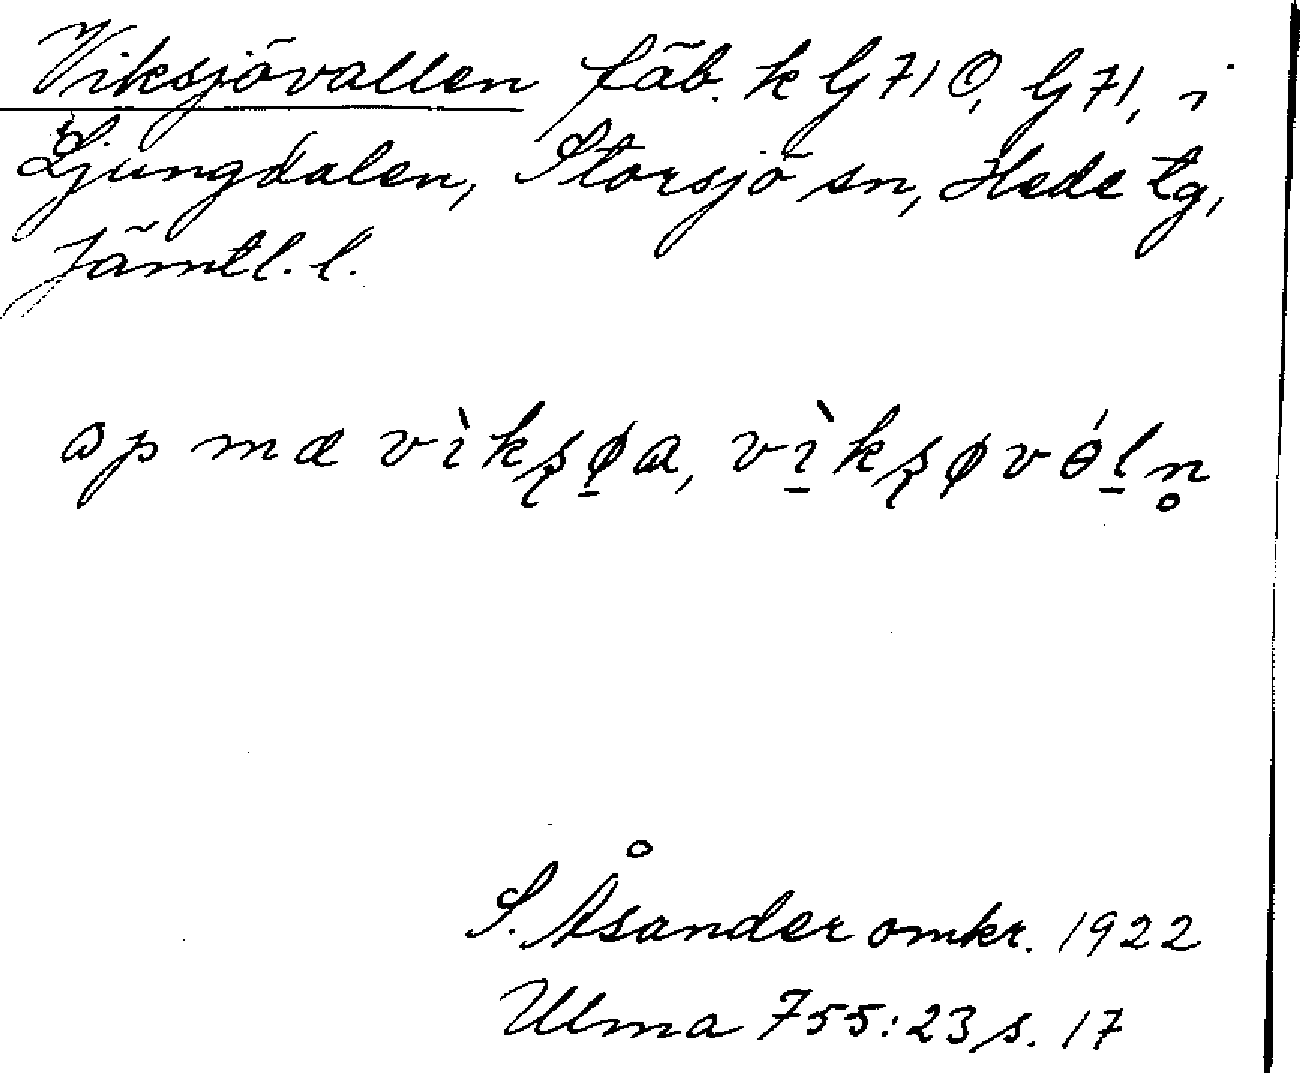 Viksjövallen fäb. k G 71 O, G 71, i
Ljungdalen, Storsjö sn, Hede tg,
Jämtl. l.
op mæ vìkʂø̱a, vì̱kʂøvóḻn̥
S. Åsander omkr. 1922
Ulma 755:23 s. 17